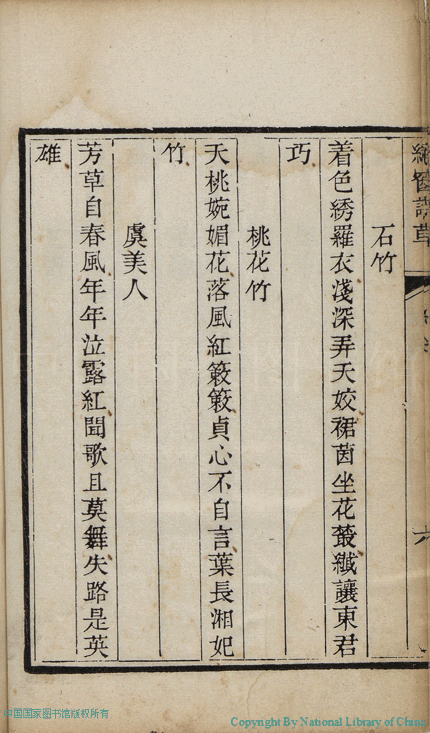 石竹
着色綉羅衣淺深弄天姣裙茵坐花蕟纖讓東君
巧
桃花竹
天桃婉媚花落風紅簌簌貞心不自言葉長湘妃
竹
虞美人
芳草自春風年年泣露紅聞歌且莫舞失路是英
雄
六
中国国家图书馆版权所有
Copyright By National Library of China